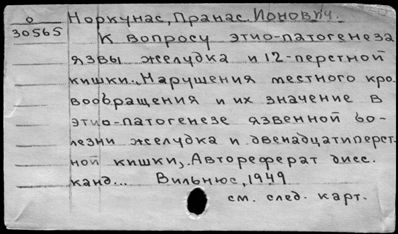 о Норкунас, Пранас Ионович.
30565 К вопросу этио-патогенеза
язвы желудка и 12-перстной
кишки. Нарушения местного кро-
вообращения и их значение в
этио-патогенезе язвенной бо-
лезни желудка и двенадцатиперст-
ной кишки. Автореферат дисс.
канд... Вильнюс, 1949
см. след. карт.